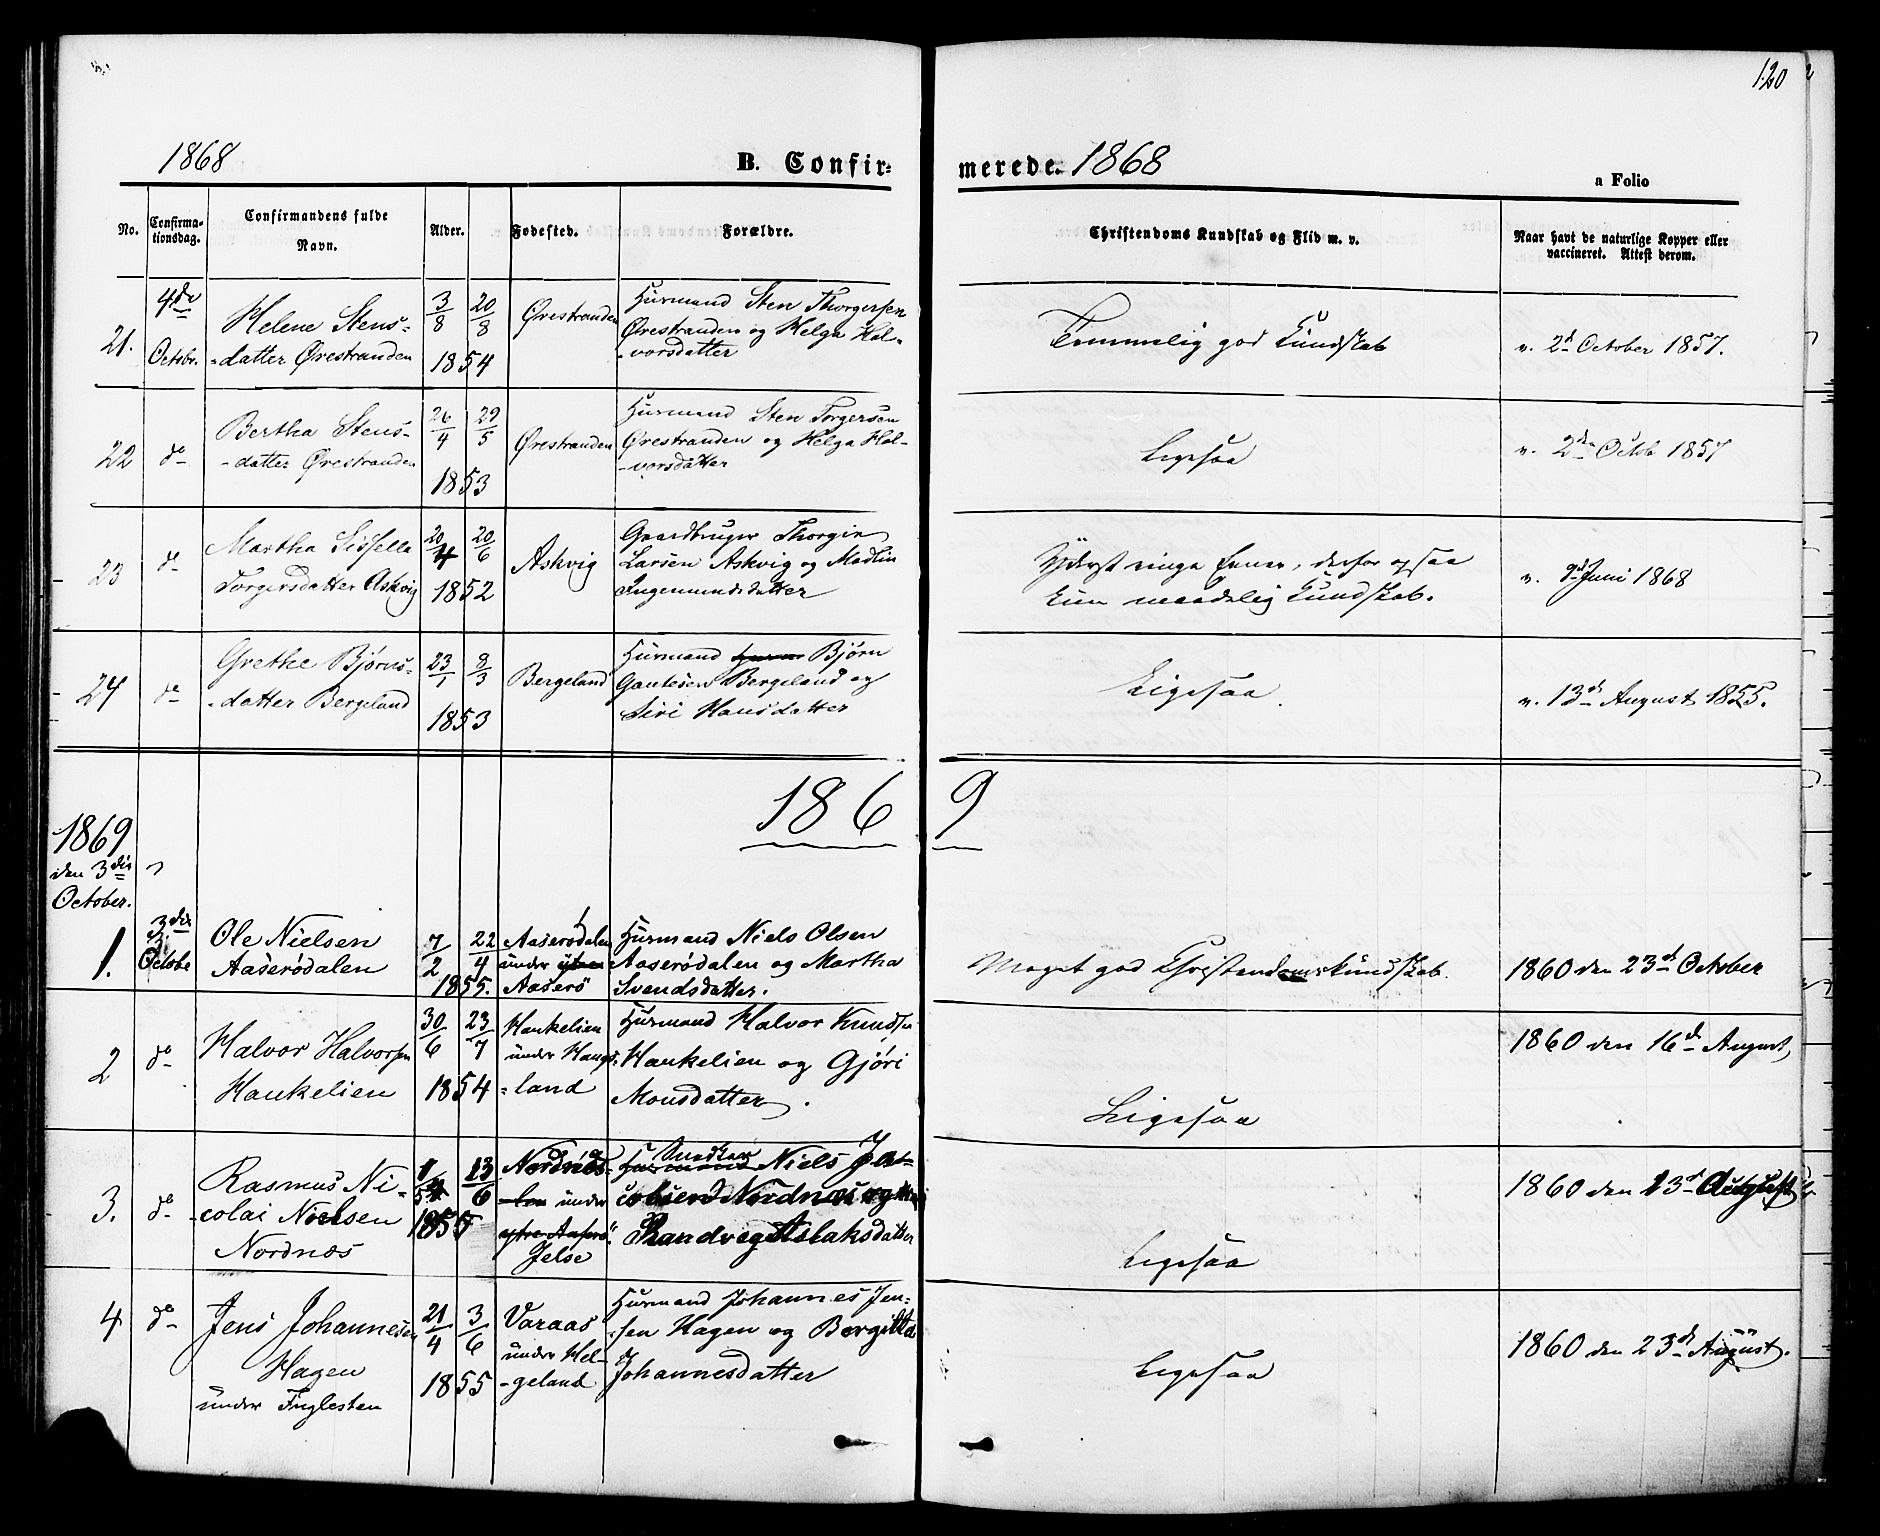 120
1868
B. Confir-
merede. 1868
a Folio
No.
Confirma-
tionsdag.
Confirmandens fulde
Navn.
Alder.
Fødested.
Forældre.
Christendoms Kundskab og Flid m. v.
Naar havt de naturlige Kopper eller
vaccineret. Attest derom.
21.
4de
Octobr.
Helene Stens-
-datter Ørestranden
3/8 20/8
1854
Ørestranden
Husmand Sten Thorgersen
Ørestranden og Helga Hal-
-vorsdatter
Temmelig god Kundskab
v. 2d October 1857.
22
do
Bertha Stens-
-datter Ørestranden
26/4 29/5
1853
Ørestranden
Husmand Sten Torgersen
Ørestranden og Helga Hal-
-vorsdatter
Ligesaa
v. 2den Octob 1857
23
do
Martha Sissella
Torgersdatter Askvig
20/4 20/6
1852
Askvig
Gaardbruger Thorgir
Larsen Askvig og Madlin
Ingemundsdatter
Yderst ringe Evner, derfor ogsaa
kun maadelig Kundskab.
v. Juni 1868
24
do
Grethe Bjørns-
-datter Bergeland
23/1 8/3
1853
Bergeland
Husmand Bjørn
Gautesen Bergeland og
Siri Hansdatter
Ligesaa
v. 13d August 1855.
1869
1869
den 3die
October.
1.
3die
Octobe
Ole Nielsen
Aaserødalen
7/2 22/4
1855.
Aaserødalen
under ytre
Aaserø
Husmand Niels Olsen
Aaserødalen og Martha
Svendsdatter.
Meget god Christendomskundskab.
1860 den 23d October
2
do
Halvor Halvorsen
Haukelien
30/6 23/7
1854
Haukelien
under Haugs-
-land
Husmand Halvor Knudsen
Haukelien og Gjøri
Monsdatter.
Ligesaa
1860 den 16d August,
3.
do
Rasmus Ni-
-colai Nielsen
Nordnæs
13/6
1855
Nordnæs-
-len under
ytre Aaserø
Jelse
Husmand Snedker Niels Ja-
cobsen Nordnæs og
Randveg Aslaksdatter
Ligesaa
1860 den 23d August
4
do
Jens Johannesen
Hagen
under Fuglesten
21/4 3/6
1855
Varaas
under Hel-
-geland
Husmand Johannes Jen-
-sen Hagen og Bergitta
Johannesdatter
Ligesaa
1860 den 23d August.